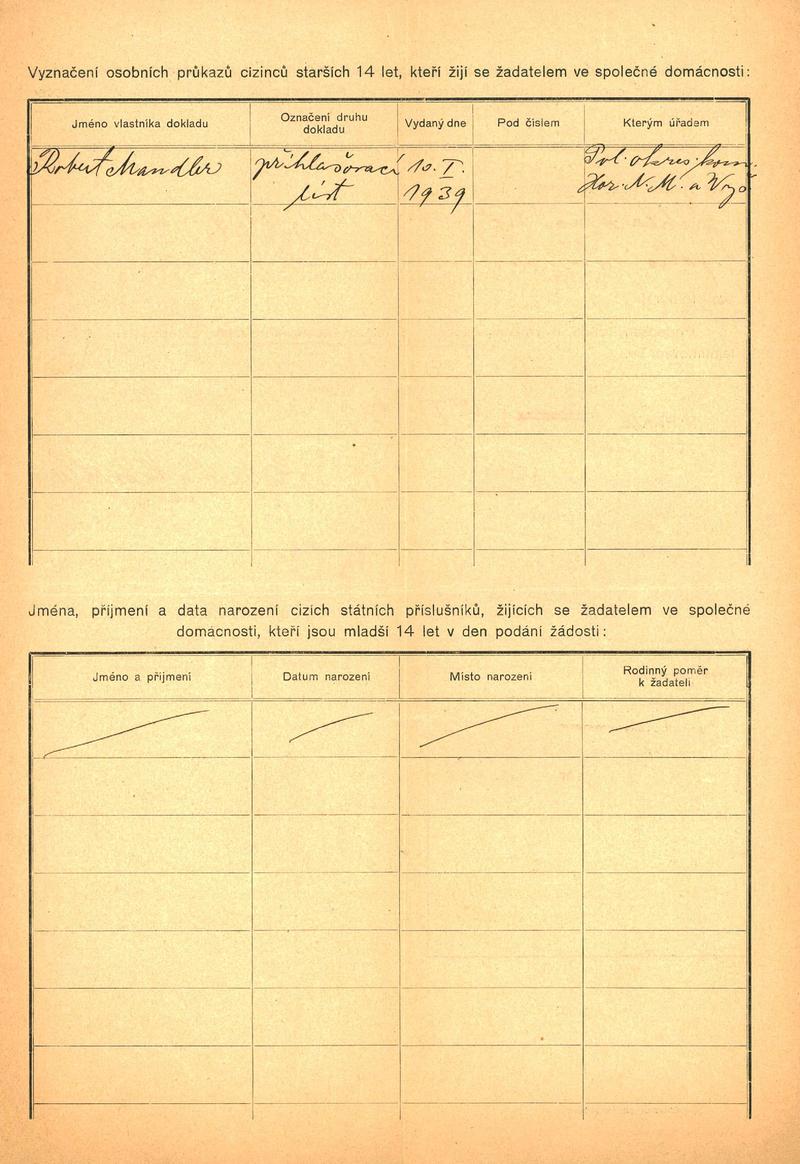 Vyznačení osobních průkazů cizinců starších 14 let, kteří žijí se žadatelem ve společné domácnosti:
Jméno vlastníka dokladu
Označení druhu
dokladu
Vydaný dne
Pod číslem
Kterým úřadem
Robert Mandler
přihlašovací
list
10. I.
1939
Pol. okres. kom.
Hor. N. M. a Vrš.
Jména, příjmení a data narození cizích státních příslušníků, žijících se žadatelem ve společné
domácnosti, kteří jsou mladší 14 let v den podání žádosti:
Jméno a příjmení
Datum narození
Místo narození
Rodinný poměr
k žadateli